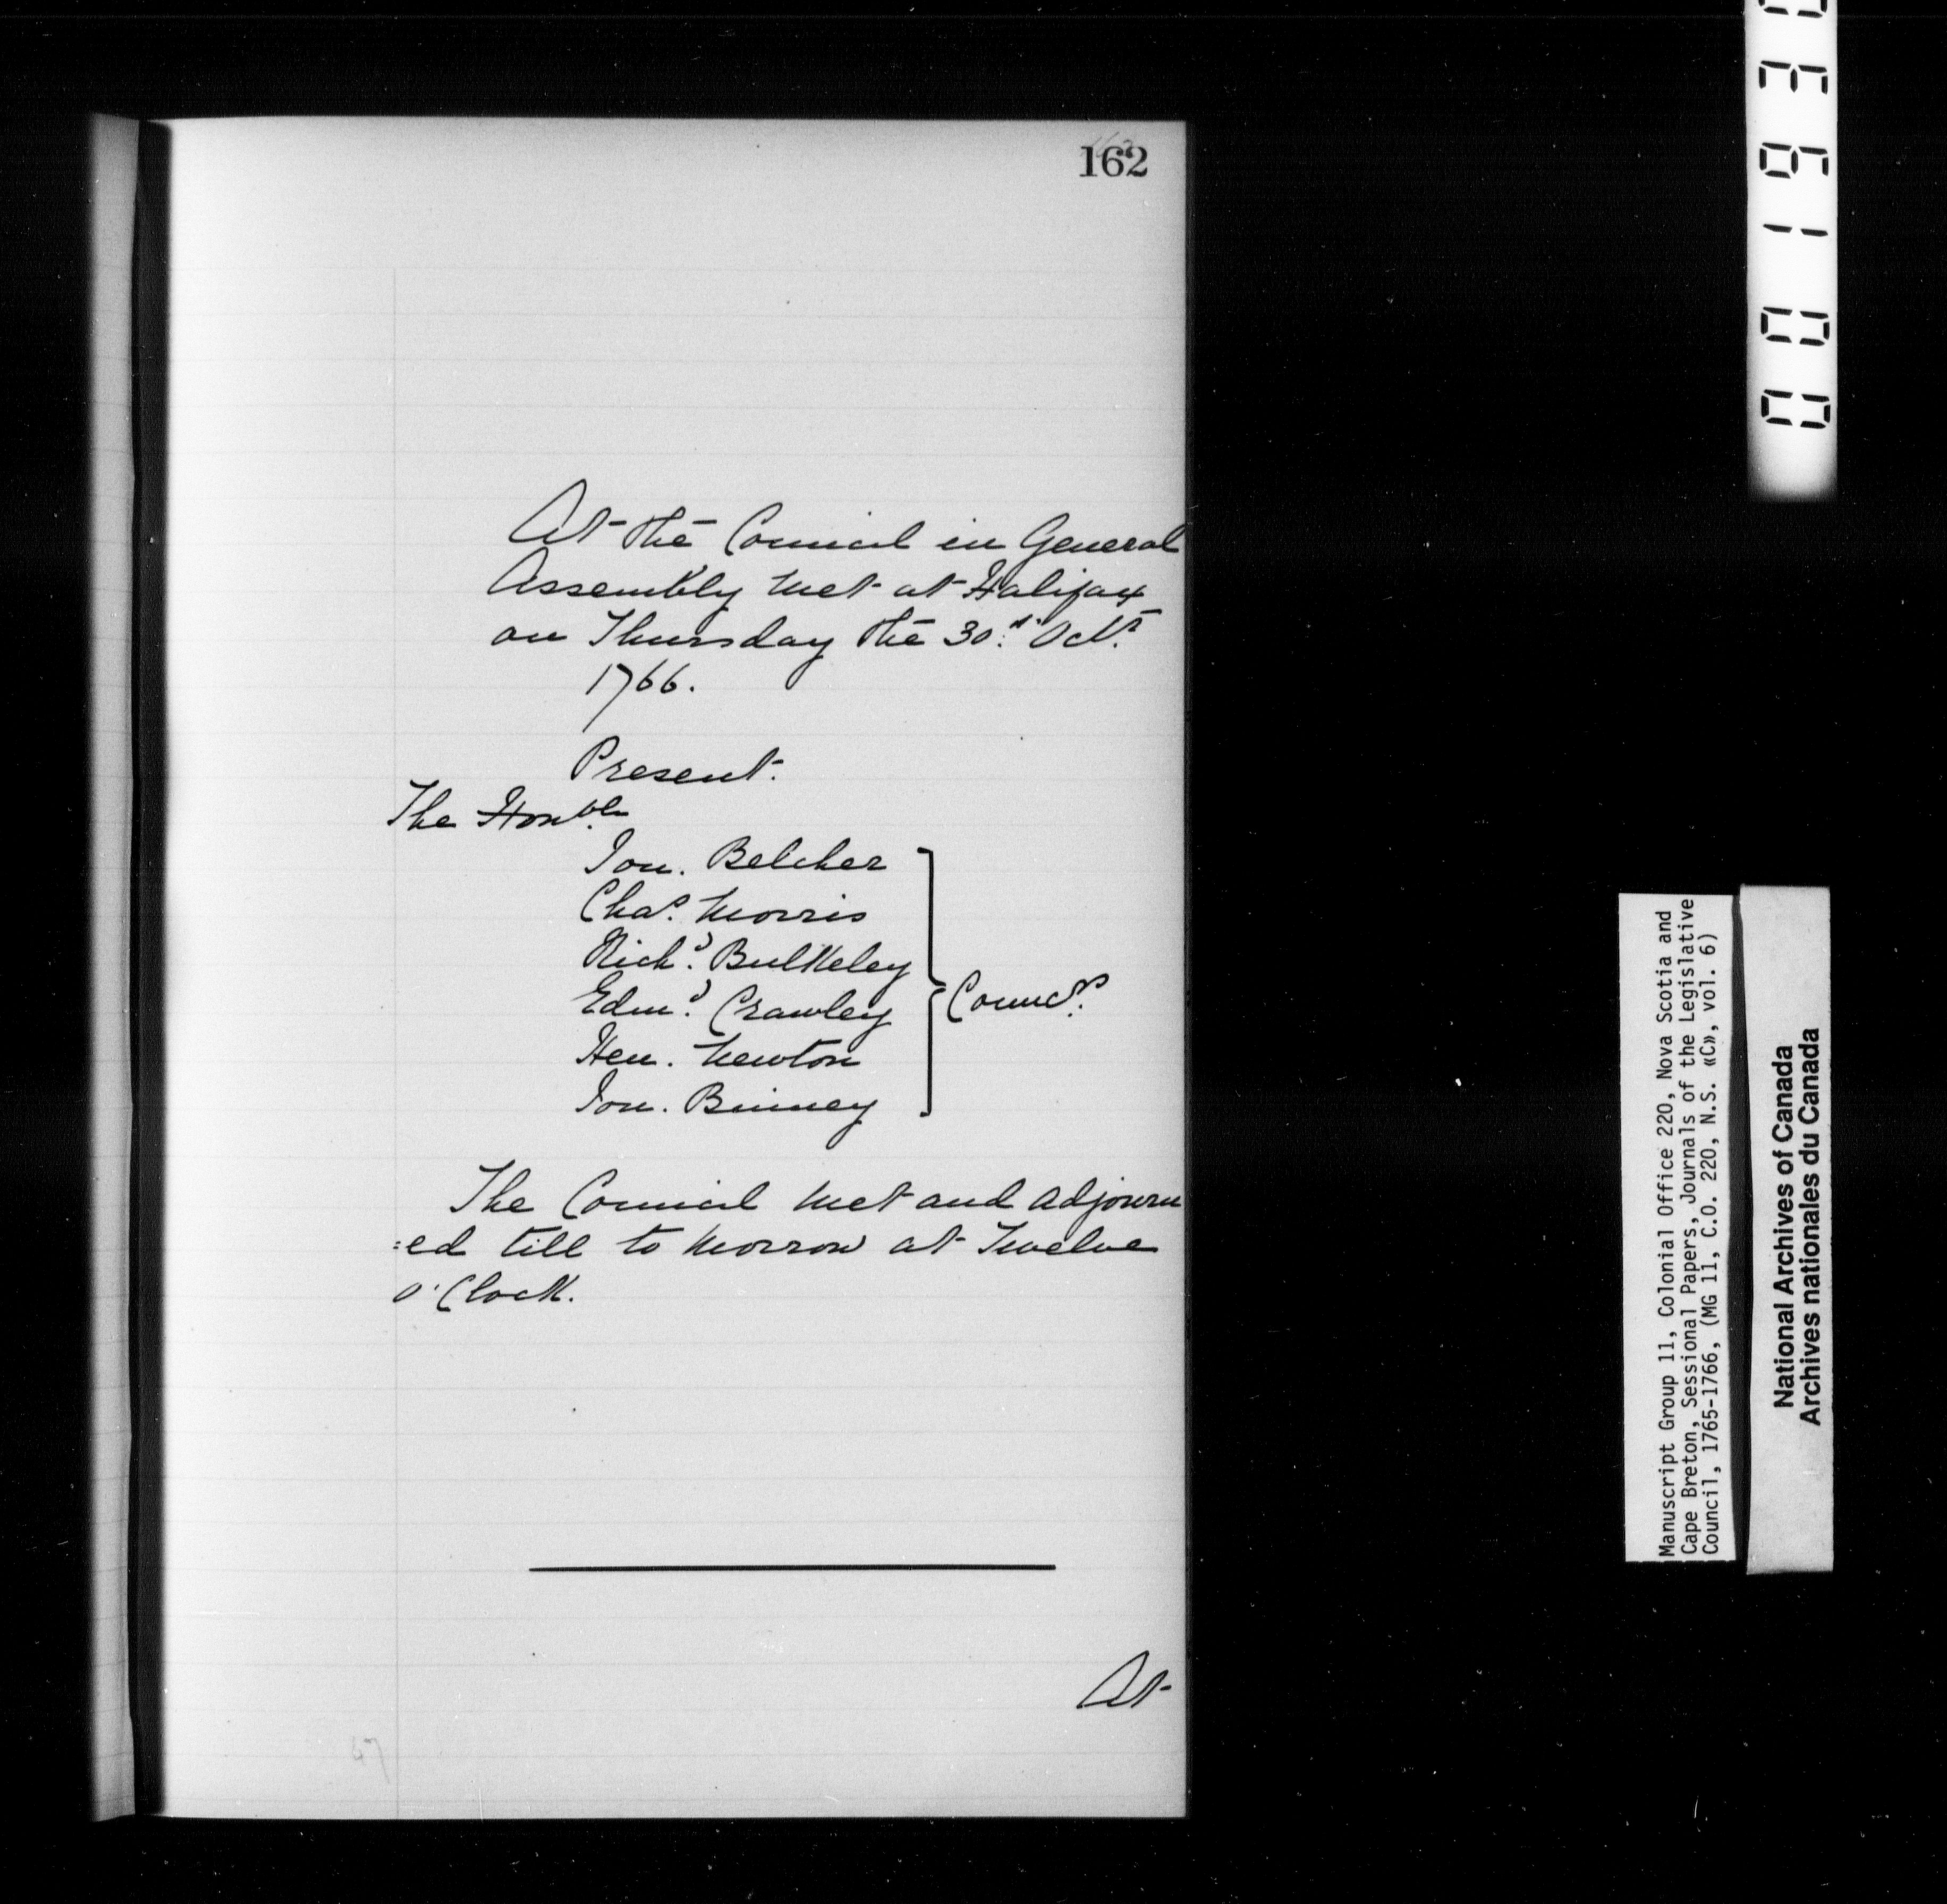 162
At the Council in General
Assembly met at Halifax
on Thursday the 30th Octr
1766.
Present.
The Honble
Jon. Belcher
Chas. Morris
Richd. Bulkeley
Edmd. Crawley
Hen. Newton
Jon. Binney
Councrs.
The Council met and adjourn
=ed till to morrow at Twelve
o'Clock.
At
67
Manuscript Group 11, Colonial Office 220, Nova Scotia and
Cape Breton, Sessional Papers, Journals of the Legislative
Council, 1765-1766, (MG 11, C.O. 220, N.S. «C», vol. 6)
National Archives of Canada
Archives nationales du Canada